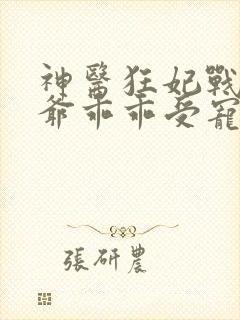 神醫狂妃戰
爺乖乖受寵
張研農